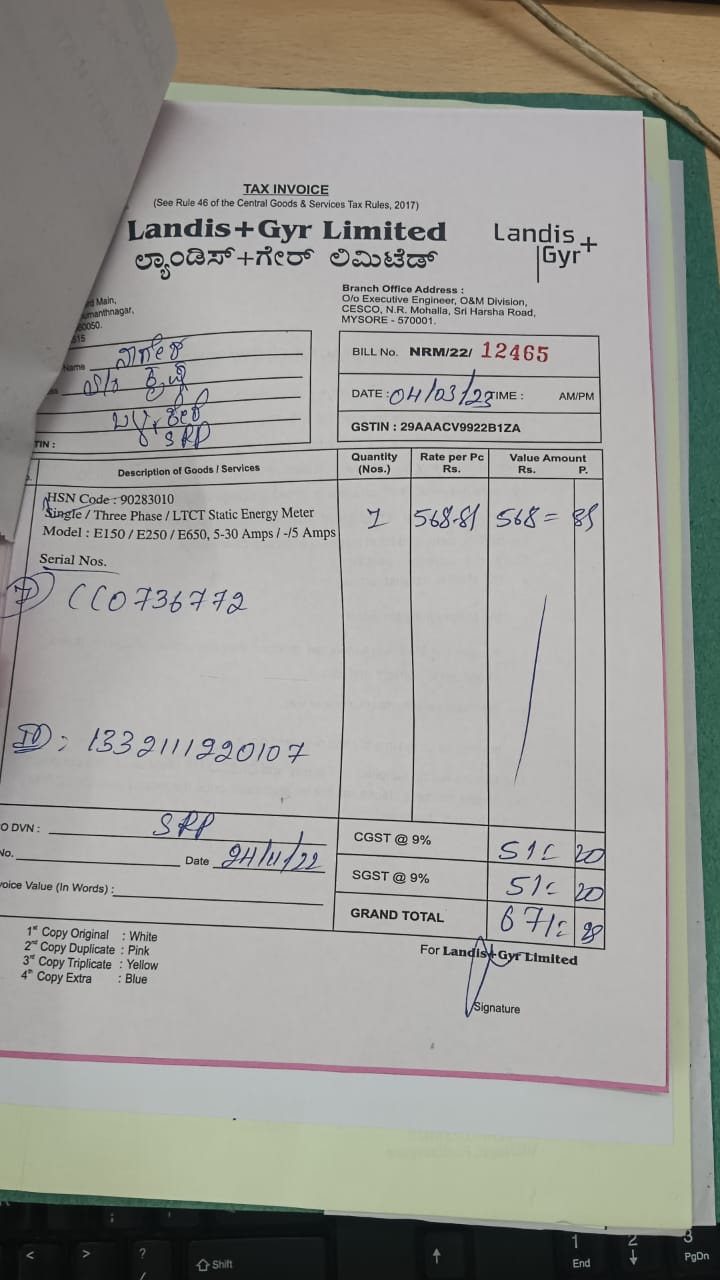 TAX INVOICE
(See Rule 46 of the Central Goods & Services Tax Rules, 2017)
Landis+Gyr Limited
ಲ್ಯಾಂಡಿಸ್+ಗೇರ್ ಲಿಮಿಟೆಡ್
Landis+
Gyr
Main,
Branch Office Address :
O/o Executive Engineer, O&M Division,
CESCO, N.R. Mohalla, Sri Harsha Road,
MYSORE - 570001.
Name
SRP
TIN :
BILL No. NRM/22/ 12465
DATE : 04/03/23 TIME : AM/PM
GSTIN : 29AAACV9922B1ZA
Description of Goods / Services
Quantity (Nos.)
Rate per Pc Rs.
Value Amount Rs. P.
HSN Code : 90283010
Single / Three Phase / LTCT Static Energy Meter
Model : E150 / E250 / E650, 5-30 Amps / -/5 Amps
1 568-81 568= 81
Serial Nos.
CC0736772
ID: 1332111220107
O DVN : SRP
No. Date 24/11/22
voice Value (In Words) :
CGST @ 9% 51= 20
SGST @ 9% 51= 20
GRAND TOTAL 671=
1st Copy Original : White
2nd Copy Duplicate : Pink
3rd Copy Triplicate : Yellow
4th Copy Extra : Blue
For Landis+Gyr Limited
Signature
< > ?
/
Shift
1
End
2
3
PgDn